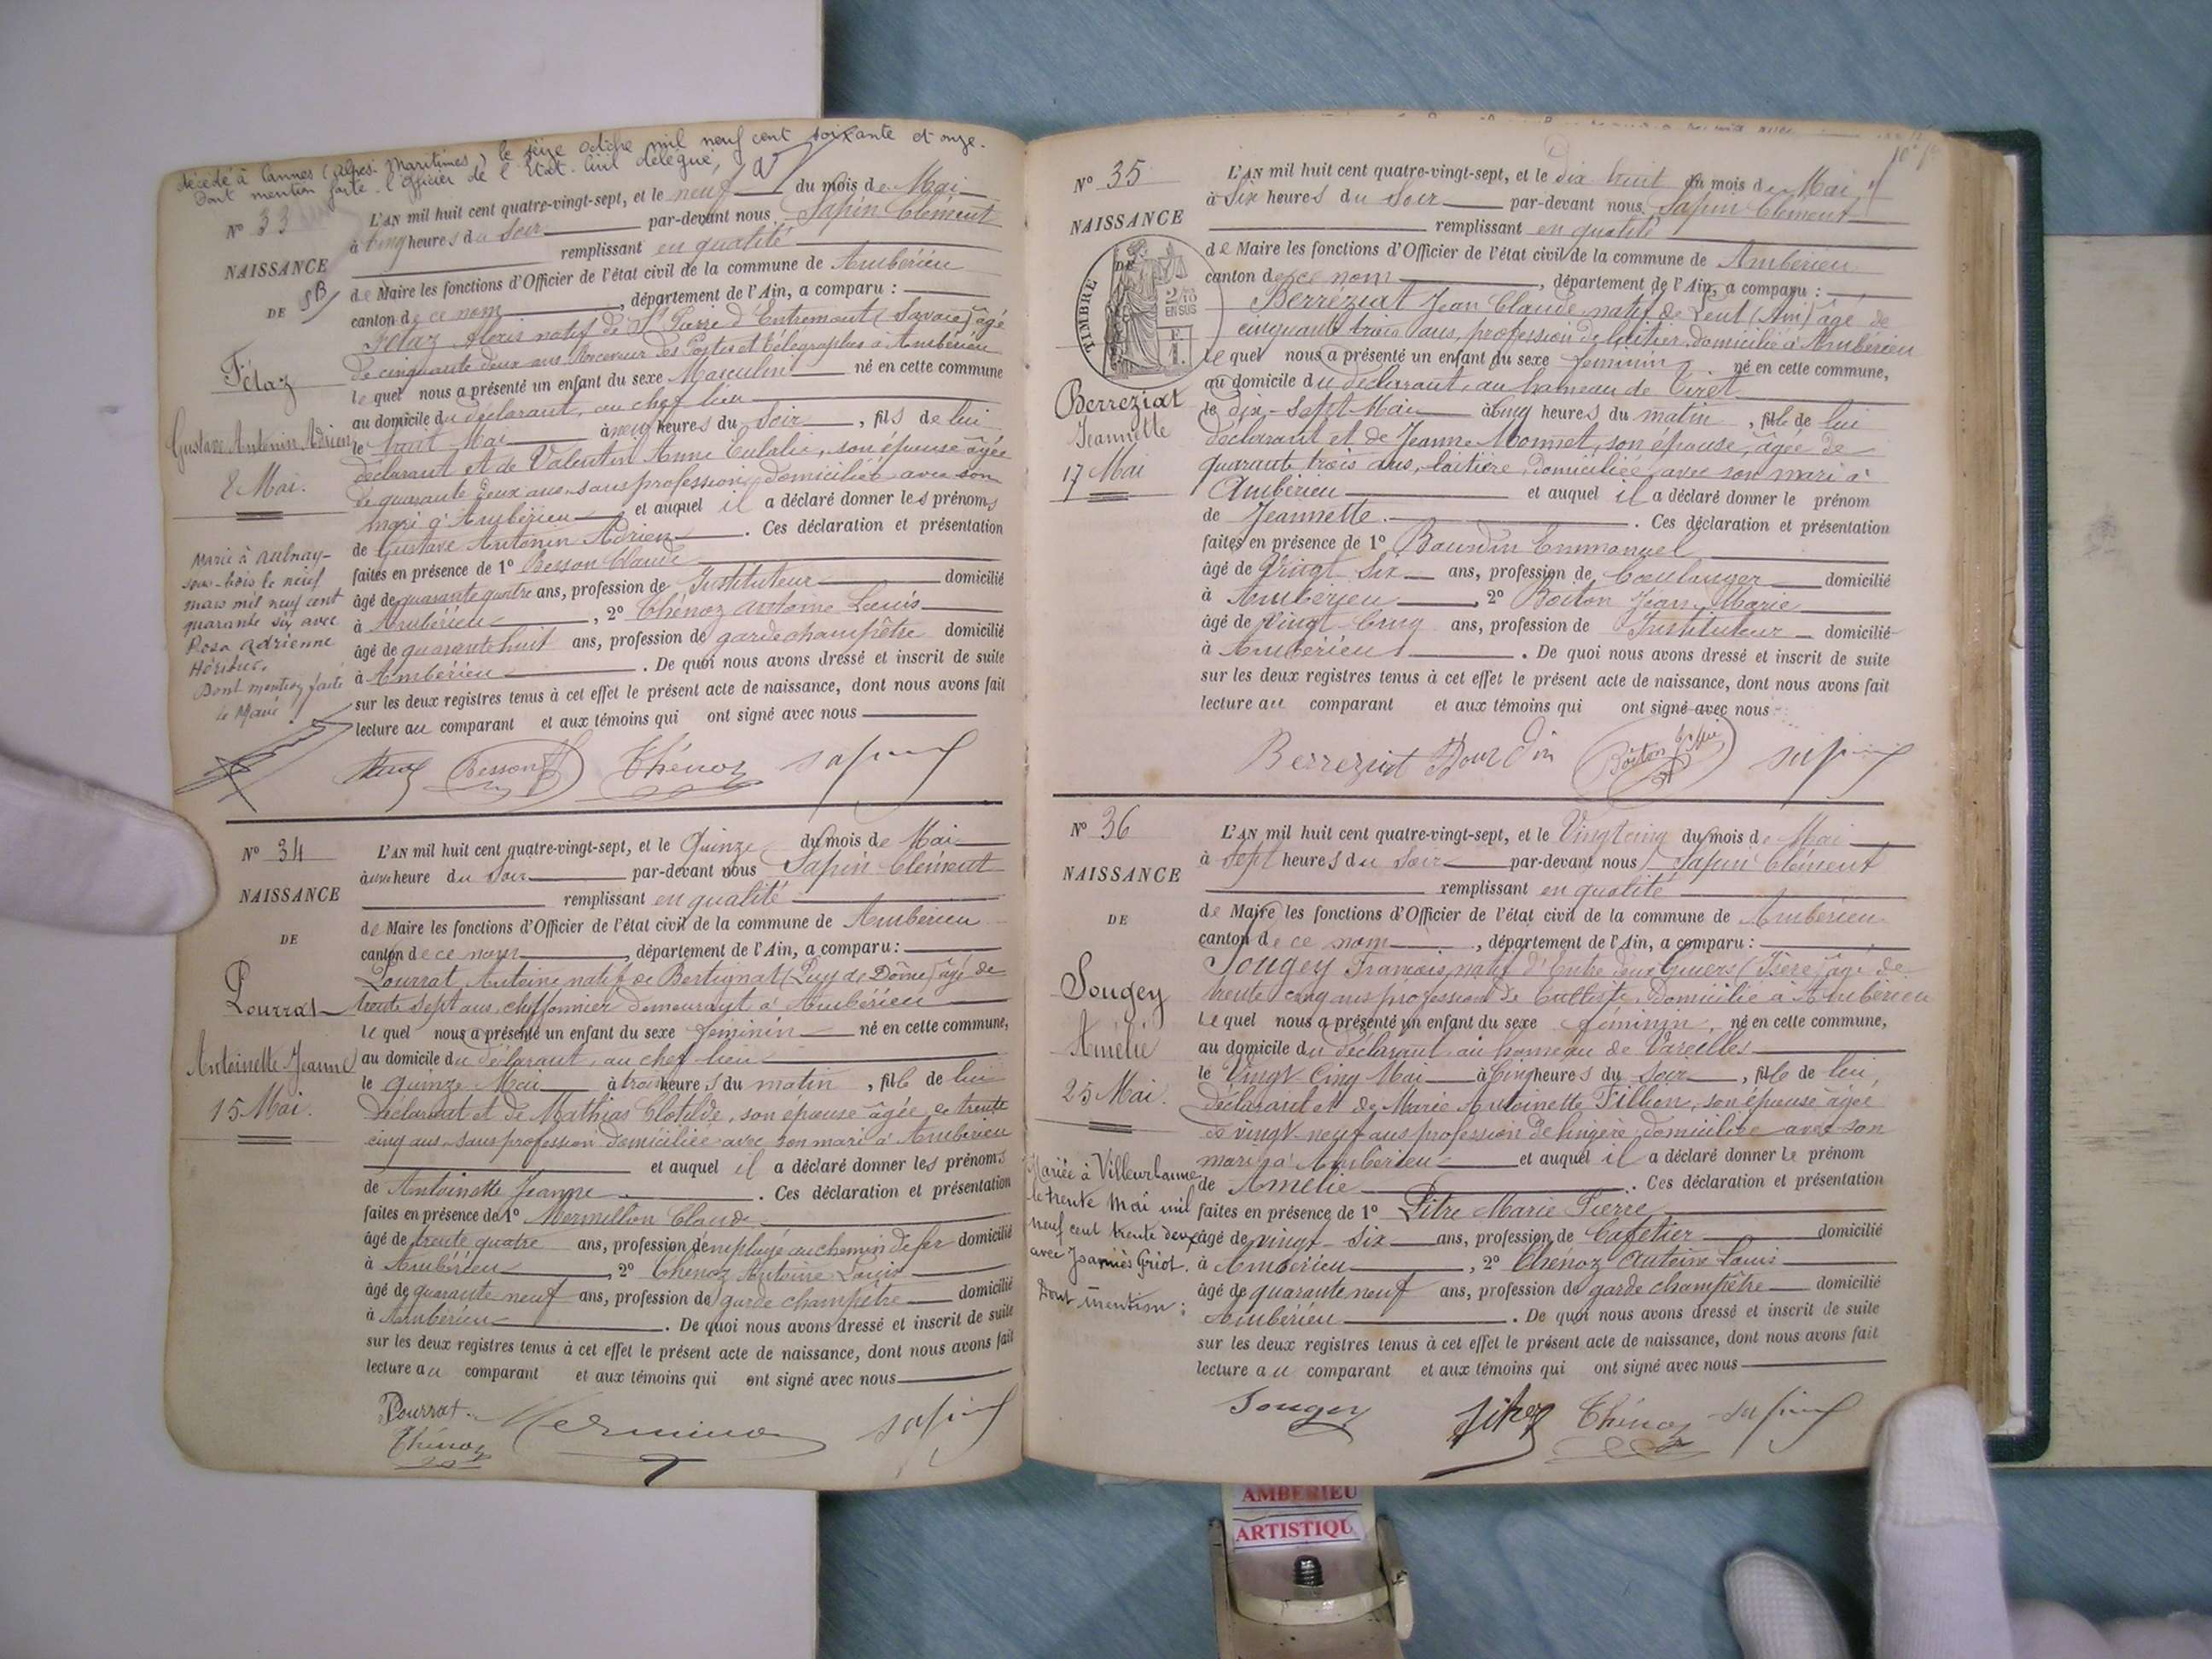 décédé à Cannes (Alpes-Maritimes) le seize octobre mil neuf cent soixante et onze.
Dont mention faite. l'Officier de l'Etat-Civil délégué,
N° 33
NAISSANCE
DE
Fétaz
Gustave Antonin Adrien
8 Mai.
Marié à Aulnay-
sous-bois le neuf
mars mil neuf cent
quarante six avec
Rosa Adrienne
Dont mention faite
le Maire
L'AN mil huit cent quatre-vingt-sept, et le neuf du mois de Mai
à Cinq heures du Soir par-devant nous Sapin Clément
remplissant en qualité
de Maire les fonctions d'Officier de l'état civil de la commune de Ambérieu
canton de ce nom, département de l'Ain, a comparu :
Fétaz Alexis natif de St Pierre d'Entremont (Savoie) âgé
de cinquante deux ans Receveur des Postes et Télégraphes à Ambérieu
lequel nous a présenté un enfant du sexe Masculin né en cette commune
au domicile du déclarant, au chef lieu
le huit Mai à neuf heures du Soir, fils de lui
déclarant et de Valentin Anne Eulalie, son épouse âgée
de quarante deux ans, sans profession, domiciliée avec son
mari à Ambérieu et auquel il a déclaré donner les prénoms
de Gustave Antonin Adrien. Ces déclaration et présentation
faites en présence de 1° Besson Claude
âgé de quarante quatre ans, profession de Instituteur domicilié
à Ambérieu, 2° Thénoz Antoine Louis
âgé de quarante huit ans, profession de garde champêtre domicilié
à Ambérieu. De quoi nous avons dressé et inscrit de suite
sur les deux registres tenus à cet effet le présent acte de naissance, dont nous avons fait
lecture au comparant et aux témoins qui ont signé avec nous
Fétaz Besson Thénoz Sapin
N° 34
NAISSANCE
DE
Pourrat
Antoinette Jeanne
15 Mai.
L'AN mil huit cent quatre-vingt-sept, et le Quinze du mois de Mai
à une heure du Soir par-devant nous Sapin Clément
remplissant en qualité
de Maire les fonctions d'Officier de l'état civil de la commune de Ambérieu
canton de ce nom, département de l'Ain, a comparu :
Pourrat Antoine natif de Bertignat (Puy de Dôme) âgé de
trente sept ans, chiffonnier demeurant à Ambérieu
lequel nous a présenté un enfant du sexe féminin né en cette commune,
au domicile du déclarant, au chef lieu
le quinze Mai à trois heures du matin, fille de lui
déclarant et de Mathias Clotilde, son épouse âgée de trente
cinq ans, sans profession domiciliée avec son mari à Ambérieu
et auquel il a déclaré donner les prénoms
de Antoinette Jeanne. Ces déclaration et présentation
faites en présence de 1° Mermillon Claude
âgé de trente quatre ans, profession d'employé au chemin de fer domicilié
à Ambérieu, 2° Thénoz Antoine Louis
âgé de quarante neuf ans, profession de garde champêtre domicilié
à Ambérieu. De quoi nous avons dressé et inscrit de suite
sur les deux registres tenus à cet effet le présent acte de naissance, dont nous avons fait
lecture au comparant et aux témoins qui ont signé avec nous
Pourrat Sapin
Thénoz
N° 35
NAISSANCE
DE
TIMBRE
2/10
EN SUS
Berreziat
Jeannette
17 Mai
L'AN mil huit cent quatre-vingt-sept, et le dix huit du mois de Mai
à Six heures du Soir par-devant nous Sapin Clément
remplissant en qualité
de Maire les fonctions d'Officier de l'état civil de la commune de Ambérieu
canton de ce nom, département de l'Ain, a comparu :
Berreziat Jean Claude natif de Lent (Ain) âgé de
cinquante trois ans, profession de laitier, domicilié à Ambérieu
lequel nous a présenté un enfant du sexe féminin né en cette commune,
au domicile du déclarant, au hameau de Tiret
le dix-sept Mai à Cinq heures du matin, fille de lui
déclarant et de Jeanne Monnet, son épouse, âgée de
quarante trois ans, laitière, domiciliée avec son mari à
Ambérieu et auquel il a déclaré donner le prénom
de Jeannette. Ces déclaration et présentation
faites en présence de 1° Bourdin Emmanuel
âgé de Vingt Six ans, profession de boulanger domicilié
à Ambérieu, 2° Boiton Jean Marie
âgé de Vingt Cinq ans, profession de Instituteur domicilié
à Ambérieu. De quoi nous avons dressé et inscrit de suite
sur les deux registres tenus à cet effet le présent acte de naissance, dont nous avons fait
lecture au comparant et aux témoins qui ont signé avec nous
Berreziat Bourdin Boiton Sapin
N° 36
NAISSANCE
DE
Sougey
Amélie
25 Mai.
Mariée à Villeurbanne
le trente Mai mil
neuf cent trente deux
avec Joannès Griot.
Dont mention :
L'AN mil huit cent quatre-vingt-sept, et le Vingt cinq du mois de Mai
à Sept heures du Soir par-devant nous Sapin Clément
remplissant en qualité
de Maire les fonctions d'Officier de l'état civil de la commune de Ambérieu
canton de ce nom, département de l'Ain, a comparu :
Sougey François, natif d'Entre deux Guiers (Isère) âgé de
trente cinq ans profession de domicilié à Ambérieu
Lequel nous a présenté un enfant du sexe féminin, né en cette commune,
au domicile du déclarant au hameau de Vareilles
le Vingt Cinq Mai à Cinq heures du Soir, fille de lui,
déclarant et de Marie Antoinette Fillion, son épouse âgée
de vingt-neuf ans profession de lingère domiciliée avec son
mari à Ambérieu et auquel il a déclaré donner le prénom
de Amélie. Ces déclaration et présentation
faites en présence de 1° Pitre Marie Pierre
âgé de vingt six ans, profession de Cafetier domicilié
à Ambérieu, 2° Thénoz Antoine Louis
âgé de quarante neuf ans, profession de garde champêtre domicilié
Ambérieu. De quoi nous avons dressé et inscrit de suite
sur les deux registres tenus à cet effet le présent acte de naissance, dont nous avons fait
lecture au comparant et aux témoins qui ont signé avec nous
Sougey Pitre Thénoz Sapin
AMBERIEU
ARTISTIQU